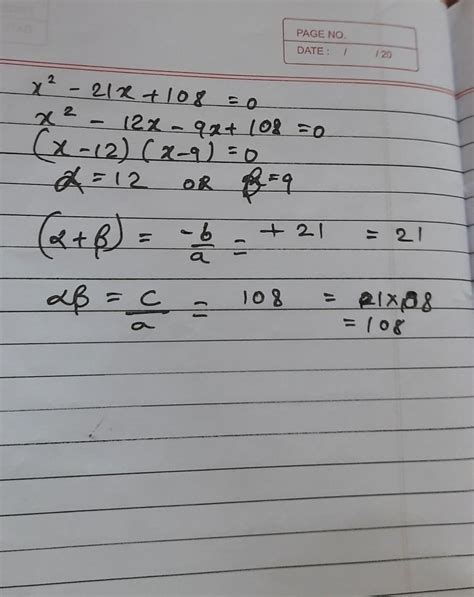 PAGE NO.
DATE : / /20
x² - 21x + 108 = 0
x² - 12x - 9x + 108 = 0
(x - 12) (x - 9) = 0
α = 12 OR β = 9
(α + β) = -b/a = + 21 = 21
αβ = c/a = 108 =
= 108